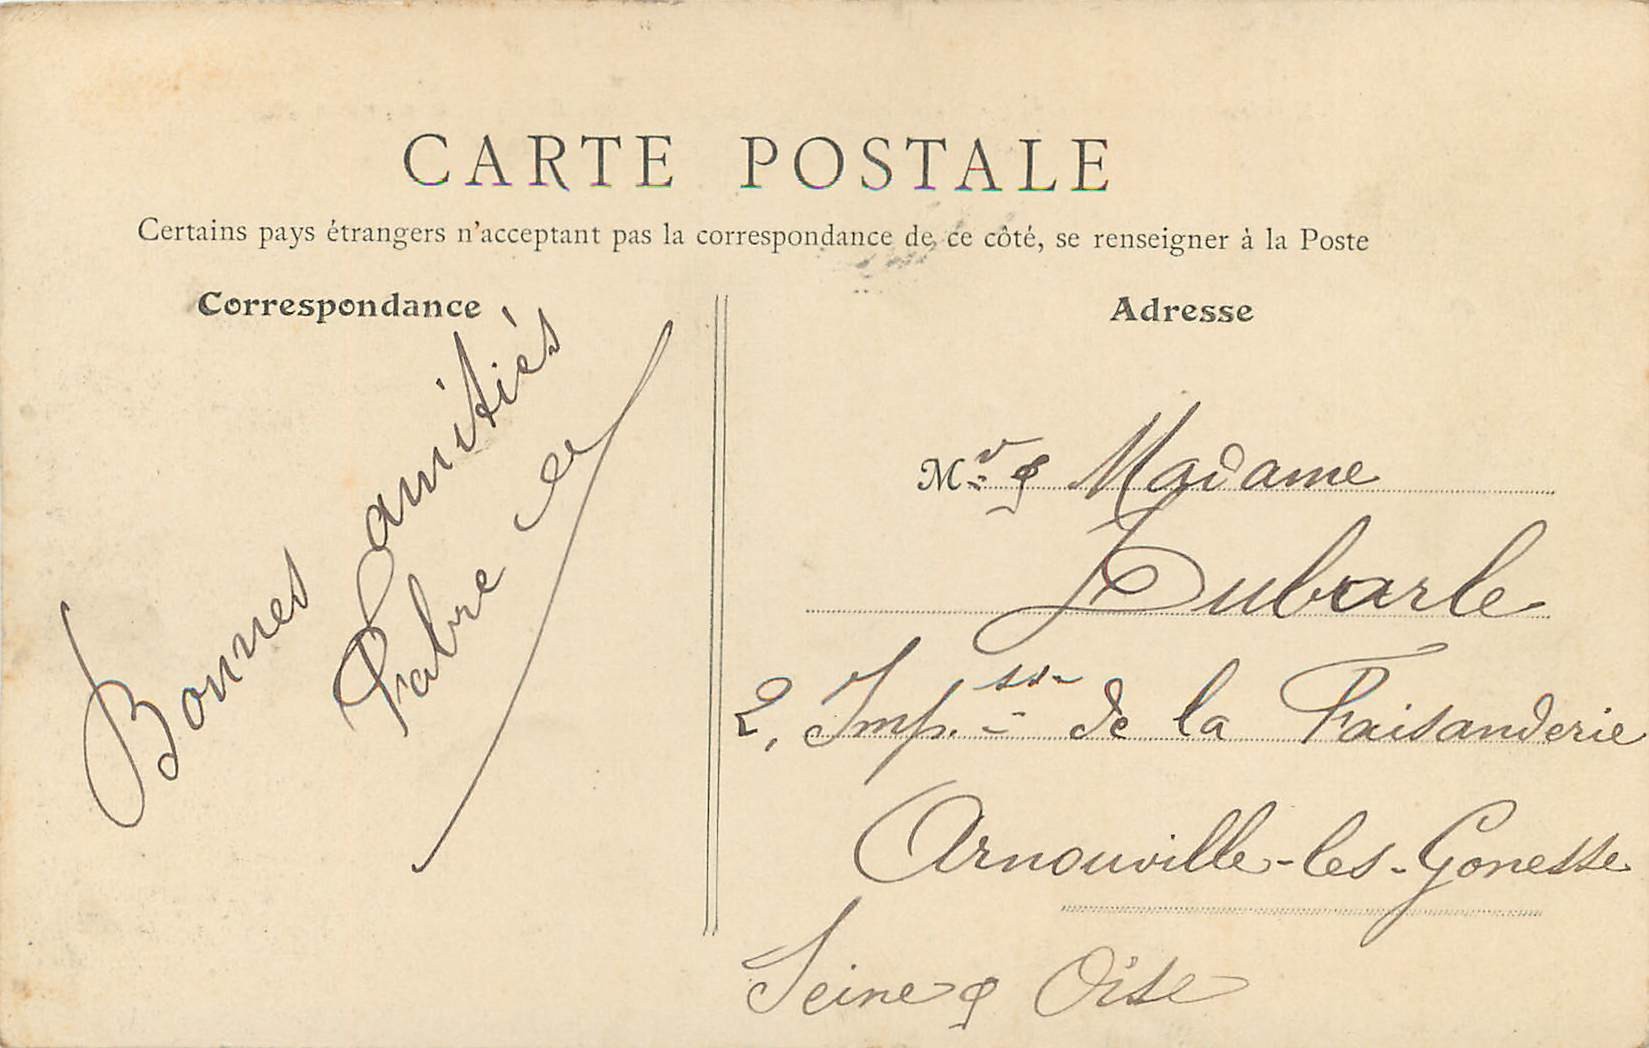 CARTE POSTALE
Certains pays étrangers n'acceptant pas la correspondance de ce côté, se renseigner à la Poste
Correspondance
Bonnes amitiés
Fabre
Adresse
Mr & Madame
Dubarle
2, Impsse de la Faisanderie
Arnouville-les-Gonesse
Seine & Oise